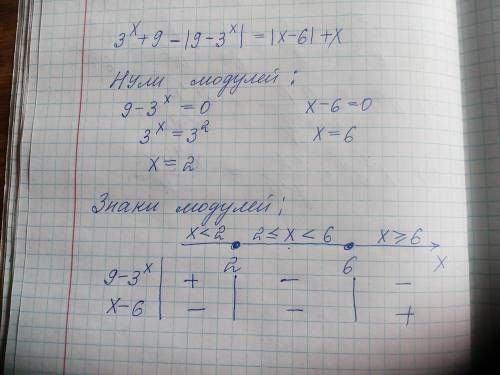 3ˣ+9-|9-3ˣ|=|x-6|+x
Нули модулей:
9-3ˣ=0 x-6=0
3ˣ=3² x=6
x=2
Знаки модулей:
x<2 2≤x<6 x≥6
2 6 x
9-3ˣ + - -
x-6 - - +